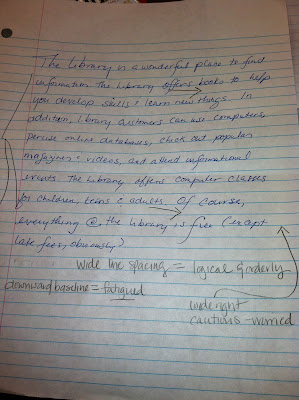 The Library is a wonderful place to find
information. The Library offers books to help
you develop skills & learn new things. In
addition, library customers can use computers,
peruse online databases, check out popular
magazines & videos, and attend informational
events. The Library offers computer classes
for children, teens & adults. Of course,
everything @ the library is free (except
late fees, obviously)
wide line spacing = logical & orderly
downward baseline = fatigued
wide right
cautious - worried